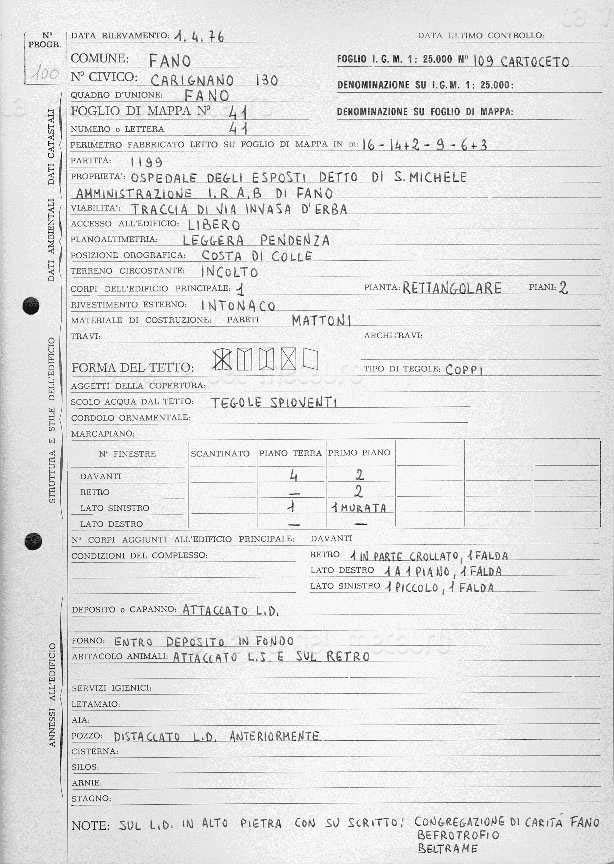 N° PROGR.
100
DATA RILEVAMENTO: 1.4.76 DATA ULTIMO CONTROLLO:
COMUNE: FANO FOGLIO I.G.M. 1: 25.000 N° 109 CARTOCETO
N° CIVICO: CARIGNANO 130 DENOMINAZIONE SU I.G.M. 1: 25.000:
QUADRO D'UNIONE: FANO
FOGLIO DI MAPPA N° 41 DENOMINAZIONE SU FOGLIO DI MAPPA:
NUMERO o LETTERA 41
PERIMETRO FABBRICATO LETTO SU FOGLIO DI MAPPA IN m: 16-14+2-9-6+3
PARTITA: 1199
PROPRIETA': OSPEDALE DEGLI ESPOSTI DETTO DI S. MICHELE
AMMINISTRAZIONE I.R.A.B DI FANO
VIABILITA': TRACCIA DI VIA INVASA D'ERBA
ACCESSO ALL'EDIFICIO: LIBERO
PLANOALTIMETRIA: LEGGERA PENDENZA
POSIZIONE OROGRAFICA: COSTA DI COLLE
TERRENO CIRCOSTANTE: INCOLTO
CORPI DELL'EDIFICIO PRINCIPALE: 1 PIANTA: RETTANGOLARE PIANI: 2
RIVESTIMENTO ESTERNO: INTONACO
MATERIALE DI COSTRUZIONE: PARETI MATTONI
TRAVI: ARCHITRAVI:
FORMA DEL TETTO: TIPO DI TEGOLE: COPPI
AGGETTI DELLA COPERTURA:
SCOLO ACQUA DAL TETTO: TEGOLE SPIOVENTI
CORDOLO ORNAMENTALE:
MARCAPIANO:
N° FINESTRE SCANTINATO PIANO TERRA PRIMO PIANO
DAVANTI 4 2
RETRO — 2
LATO SINISTRO 1 1 MURATA
LATO DESTRO — —
N° CORPI AGGIUNTI ALL'EDIFICIO PRINCIPALE: DAVANTI
CONDIZIONI DEL COMPLESSO: RETRO 1 IN PARTE CROLLATO, 1 FALDA
LATO DESTRO 1 A 1 PIANO, 1 FALDA
LATO SINISTRO 1 PICCOLO, 1 FALDA
DEPOSITO o CAPANNO: ATTACCATO L.D.
FORNO: ENTRO DEPOSITO IN FONDO
ABITACOLO ANIMALI: ATTACCATO L.S E SUL RETRO
SERVIZI IGIENICI:
LETAMAIO:
AIA:
POZZO: DISTACCATO L.D. ANTERIORMENTE
CISTERNA:
SILOS:
ARNIE:
STAGNO:
NOTE: SUL L.D. IN ALTO PIETRA CON SU SCRITTO: CONGREGAZIONE DI CARITÀ FANO
BEFROTROFIO
BELTRAME
DATI CATASTALI
DATI AMBIENTALI
STRUTTURA E STILE DELL'EDIFICIO
ANNESSI ALL'EDIFICIO